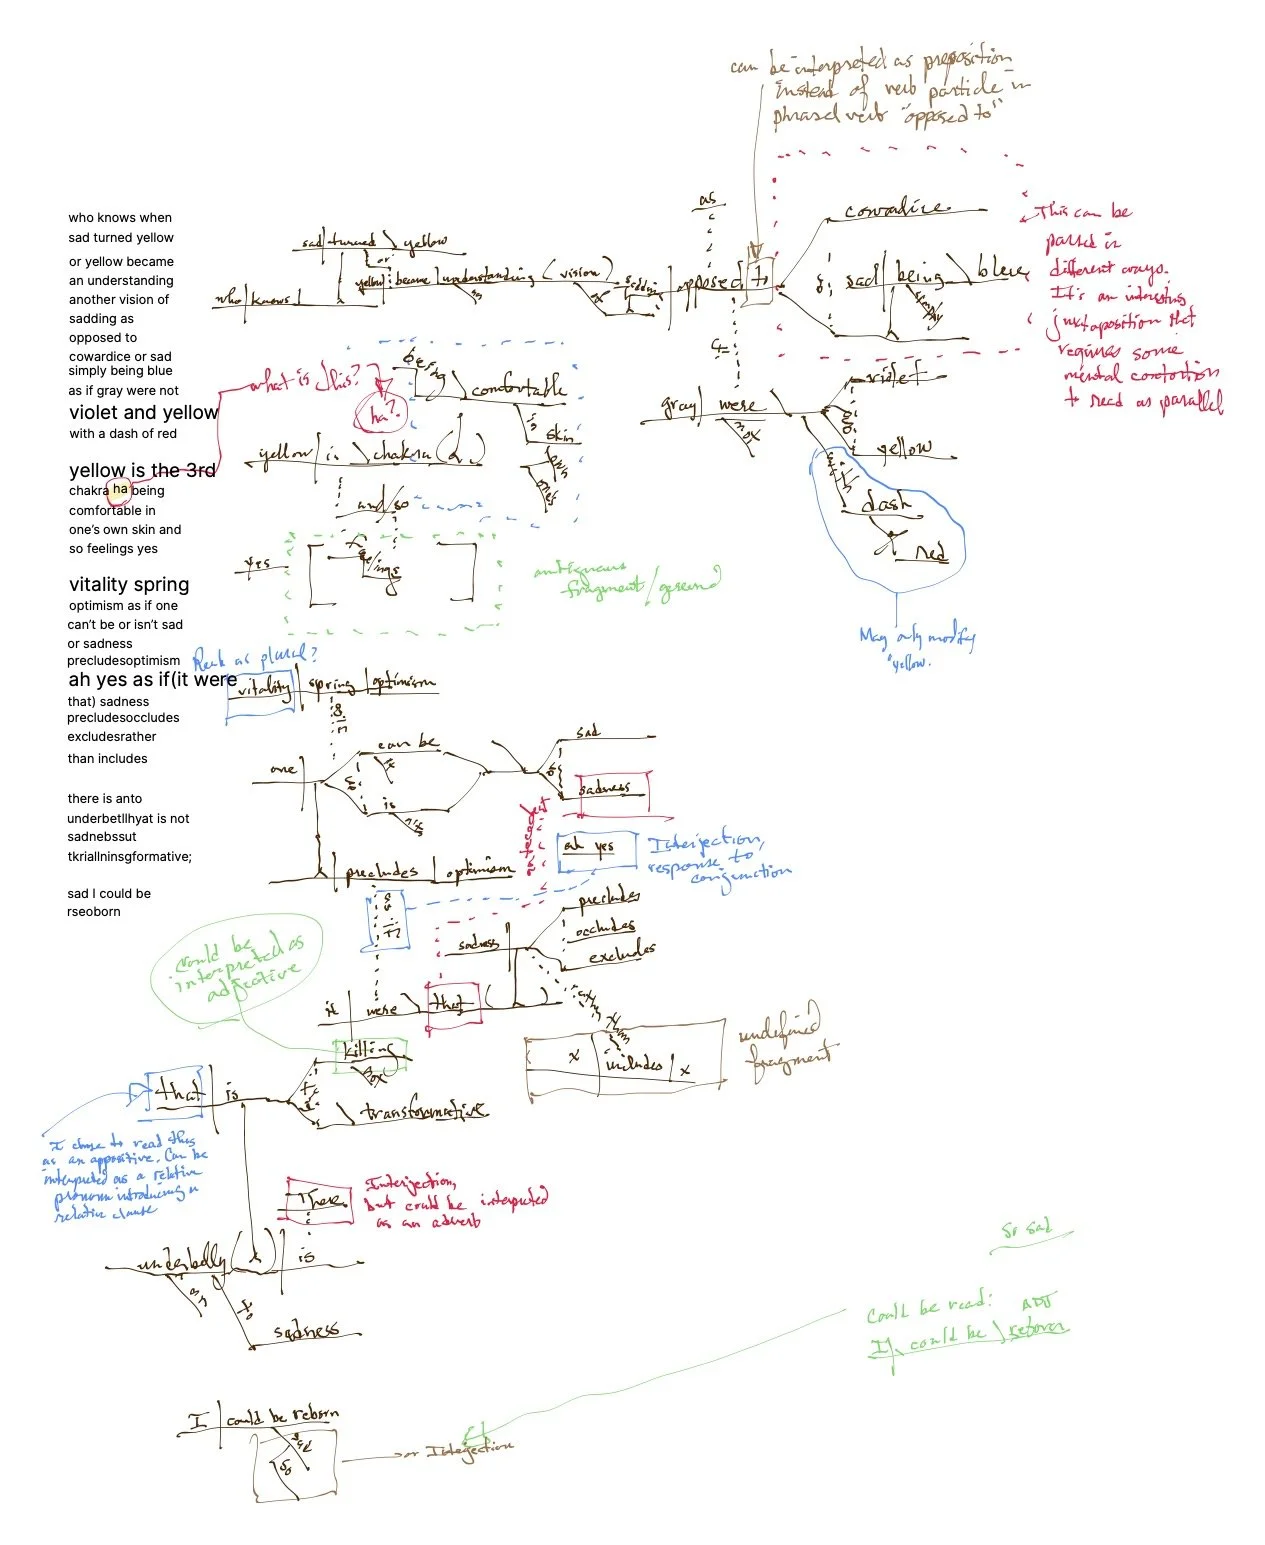 who knows when
sad turned yellow
or yellow became
an understanding
another vision of
sadding as
opposed to
cowardice or sad
simply being blue
as if gray were not
violet and yellow
with a dash of red
yellow is the 3rd
chakra ha being
comfortable in
one's own skin and
so feelings yes
vitality spring
optimism as if one
can't be or isn't sad
or sadness
precludesoptimism
ah yes as if(it were
that) sadness
precludesoccludes
excludesrather
than includes
there is anto
underbetllhyat is not
sadnebssut
tkriallninsgformative;
sad I could be
rseoborn
can be interpreted as preposition
instead of verb particle in
phrasal verb "opposed to"
as
cowardice
sad turned yellow
or
yellow became understanding (vision)
an
sadding
opposed to
or
sad being blue
simply
who knows
This can be
parsed in
different ways.
It's an interesting
juxtaposition that
requires some
mental contortion
to read as parallel
if
gray were
not
violet
and
yellow
with
dash
of
red
May only modify
"yellow."
what is this?
ha?
being
comfortable
in
skin
one's
own
yellow is chakra ( )
and/so
yes
feelings
ambiguous
fragment/gerund
Read as plural?
vitality spring optimism
as if
one
can be
not
or
is
not
sad
or
sadness
precludes optimism
antecedent
ah yes
Interjection,
response to
conjunction
as if
sadness
precludes
occludes
excludes
rather
than
it were that ( )
x includes x
undefined
fragment
could be
interpreted as
adjective
killing
not
that is
transformative
I chose to read this
as an appositive. Can be
interpreted as a relative
pronoun introducing a
relative clause
There
Interjection,
but could be interpreted
as an adverb
underbelly ( ) is
an
to
sadness
So sad
Could be read: ADJ
I could be reborn
I could be reborn
sad
so
or Interjection